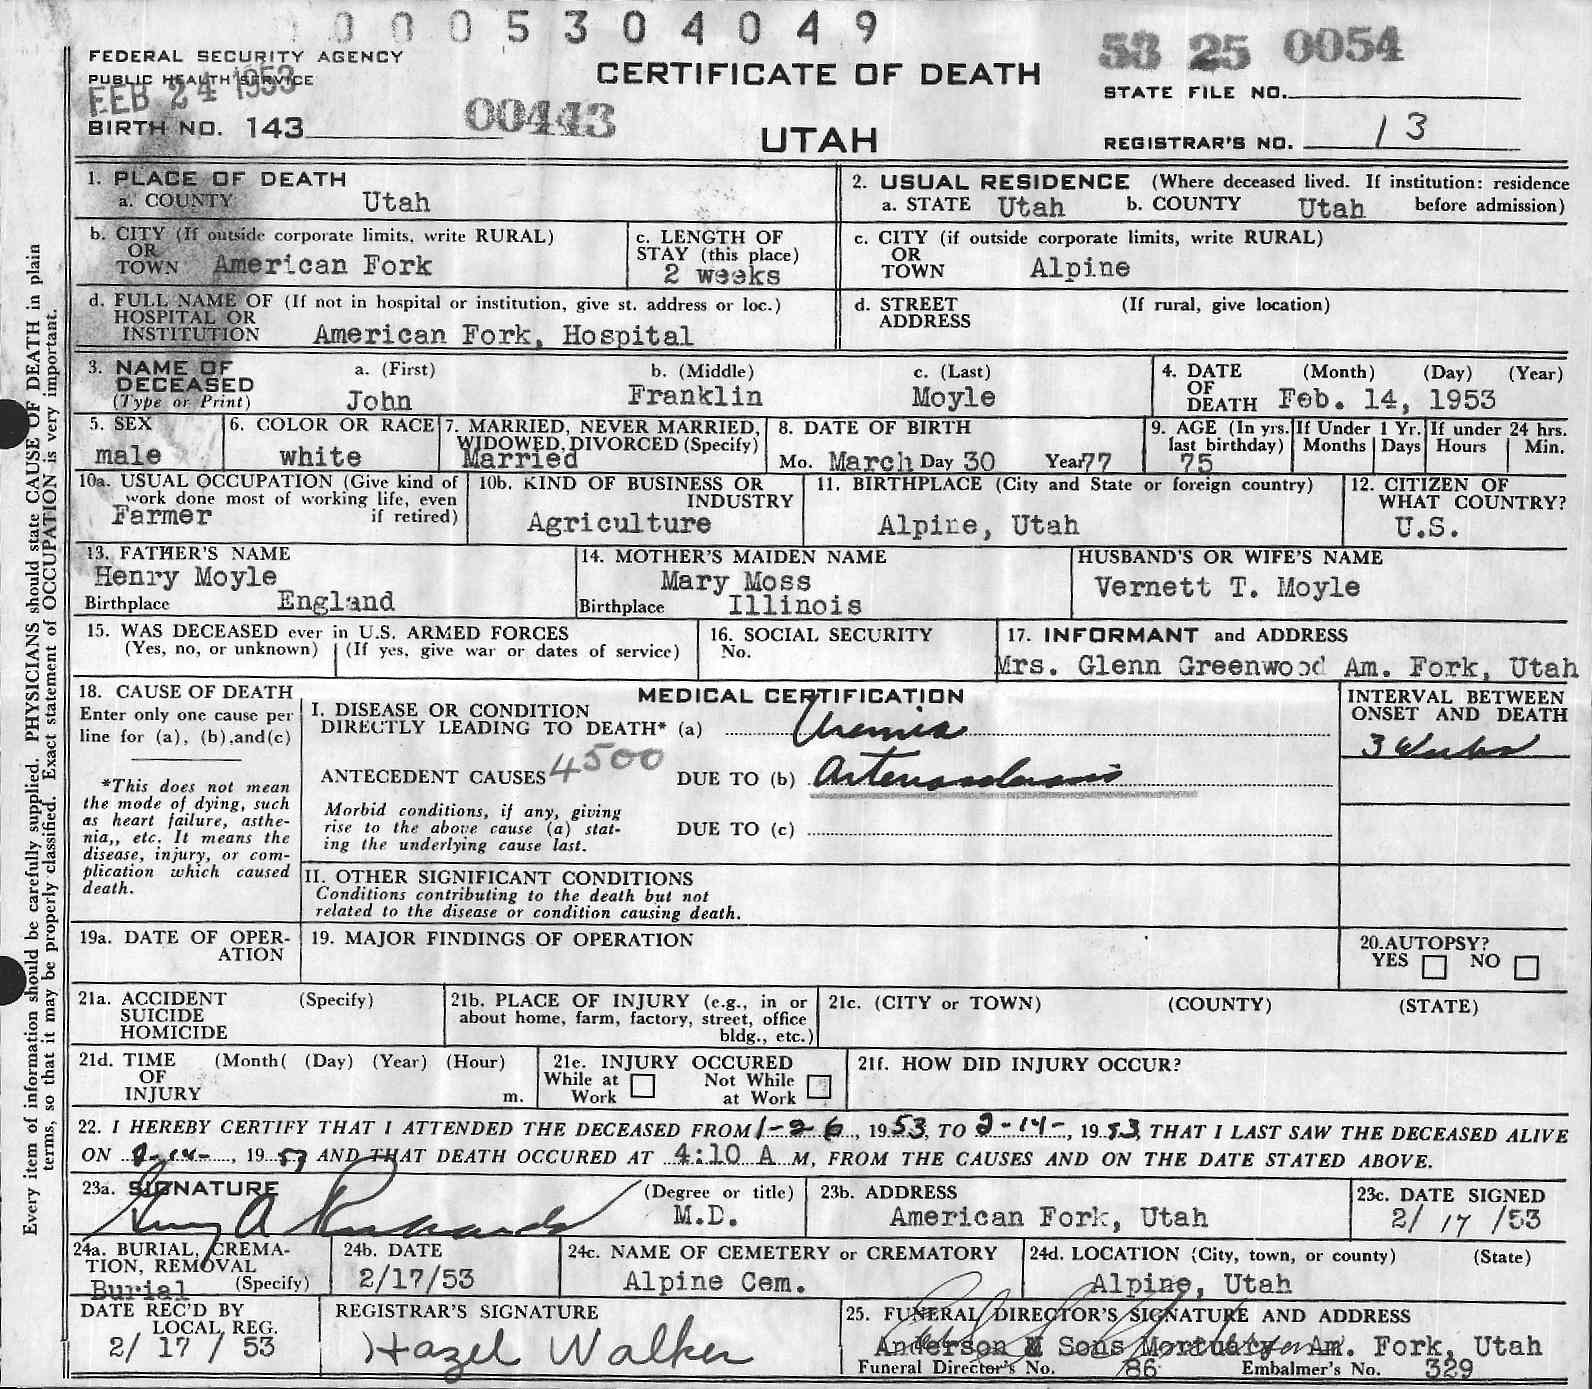 0005304049
FEDERAL SECURITY AGENCY
PUBLIC HEALTH SERVICE
FEB 24 1953
BIRTH NO. 143
00443
CERTIFICATE OF DEATH
UTAH
53 25 0054
STATE FILE NO.
REGISTRAR'S NO. 13
1. PLACE OF DEATH
a. COUNTY Utah
2. USUAL RESIDENCE (Where deceased lived. If institution: residence
a. STATE Utah b. COUNTY Utah before admission)
b. CITY (If outside corporate limits, write RURAL)
OR
TOWN American Fork
c. LENGTH OF
STAY (this place)
2 weeks
c. CITY (if outside corporate limits, write RURAL)
OR
TOWN Alpine
d. FULL NAME OF (If not in hospital or institution, give st. address or loc.)
HOSPITAL OR
INSTITUTION American Fork, Hospital
d. STREET (If rural, give location)
ADDRESS
3. NAME OF a. (First) b. (Middle) c. (Last)
DECEASED
(Type or Print) John Franklin Moyle
4. DATE (Month) (Day) (Year)
OF
DEATH Feb. 14, 1953
5. SEX
male
6. COLOR OR RACE
white
7. MARRIED, NEVER MARRIED,
WIDOWED, DIVORCED (Specify)
Married
8. DATE OF BIRTH
Mo. March Day 30 Year 77
9. AGE (In yrs.
last birthday)
75
If Under 1 Yr.
Months Days
If under 24 hrs.
Hours Min.
10a. USUAL OCCUPATION (Give kind of
work done most of working life, even
Farmer if retired)
10b. KIND OF BUSINESS OR
INDUSTRY
Agriculture
11. BIRTHPLACE (City and State or foreign country)
Alpine, Utah
12. CITIZEN OF
WHAT COUNTRY?
U.S.
13. FATHER'S NAME
Henry Moyle
Birthplace England
14. MOTHER'S MAIDEN NAME
Mary Moss
Birthplace Illinois
HUSBAND'S OR WIFE'S NAME
Vernett T. Moyle
15. WAS DECEASED ever in U.S. ARMED FORCES
(Yes, no, or unknown) (If yes, give war or dates of service)
16. SOCIAL SECURITY
No.
17. INFORMANT and ADDRESS
Mrs. Glenn Greenwood Am. Fork, Utah
18. CAUSE OF DEATH
Enter only one cause per
line for (a), (b), and (c)
*This does not mean
the mode of dying, such
as heart failure, asthe-
nia,, etc. It means the
disease, injury, or com-
plication which caused
death.
MEDICAL CERTIFICATION
I. DISEASE OR CONDITION
DIRECTLY LEADING TO DEATH* (a) Uremia
ANTECEDENT CAUSES 4500 DUE TO (b) Arteriosclerosis
Morbid conditions, if any, giving
rise to the above cause (a) stat-
ing the underlying cause last.
DUE TO (c)
INTERVAL BETWEEN
ONSET AND DEATH
3 Weeks
II. OTHER SIGNIFICANT CONDITIONS
Conditions contributing to the death but not
related to the disease or condition causing death.
19a. DATE OF OPER-
ATION
19. MAJOR FINDINGS OF OPERATION
20. AUTOPSY?
YES NO
21a. ACCIDENT (Specify)
SUICIDE
HOMICIDE
21b. PLACE OF INJURY (e.g., in or
about home, farm, factory, street, office
bldg., etc.)
21c. (CITY or TOWN) (COUNTY) (STATE)
21d. TIME (Month( (Day) (Year) (Hour)
OF
INJURY m.
21e. INJURY OCCURED
While at Work Not While at Work
21f. HOW DID INJURY OCCUR?
22. I HEREBY CERTIFY THAT I ATTENDED THE DECEASED FROM 1-26, 1953, TO 2-14-, 1953, THAT I LAST SAW THE DECEASED ALIVE
ON 2-14-, 1953 AND THAT DEATH OCCURED AT 4:10 A M, FROM THE CAUSES AND ON THE DATE STATED ABOVE.
23a. SIGNATURE (Degree or title)
M.D.
23b. ADDRESS
American Fork, Utah
23c. DATE SIGNED
2/ 17 /53
24a. BURIAL, CREMA-
TION, REMOVAL
Burial (Specify)
24b. DATE
2/17/53
24c. NAME OF CEMETERY or CREMATORY
Alpine Cem.
24d. LOCATION (City, town, or county) (State)
Alpine, Utah
DATE REC'D BY
LOCAL REG.
2/ 17 / 53
REGISTRAR'S SIGNATURE
Hazel Walker
25. FUNERAL DIRECTOR'S SIGNATURE AND ADDRESS
Anderson & Sons Mortuary Am. Fork, Utah
Funeral Director's No. 86 Embalmer's No. 329
Every item of information should be carefully supplied. PHYSICIANS should state CAUSE OF DEATH in plain
terms, so that it may be properly classified. Exact statement of OCCUPATION is very important.